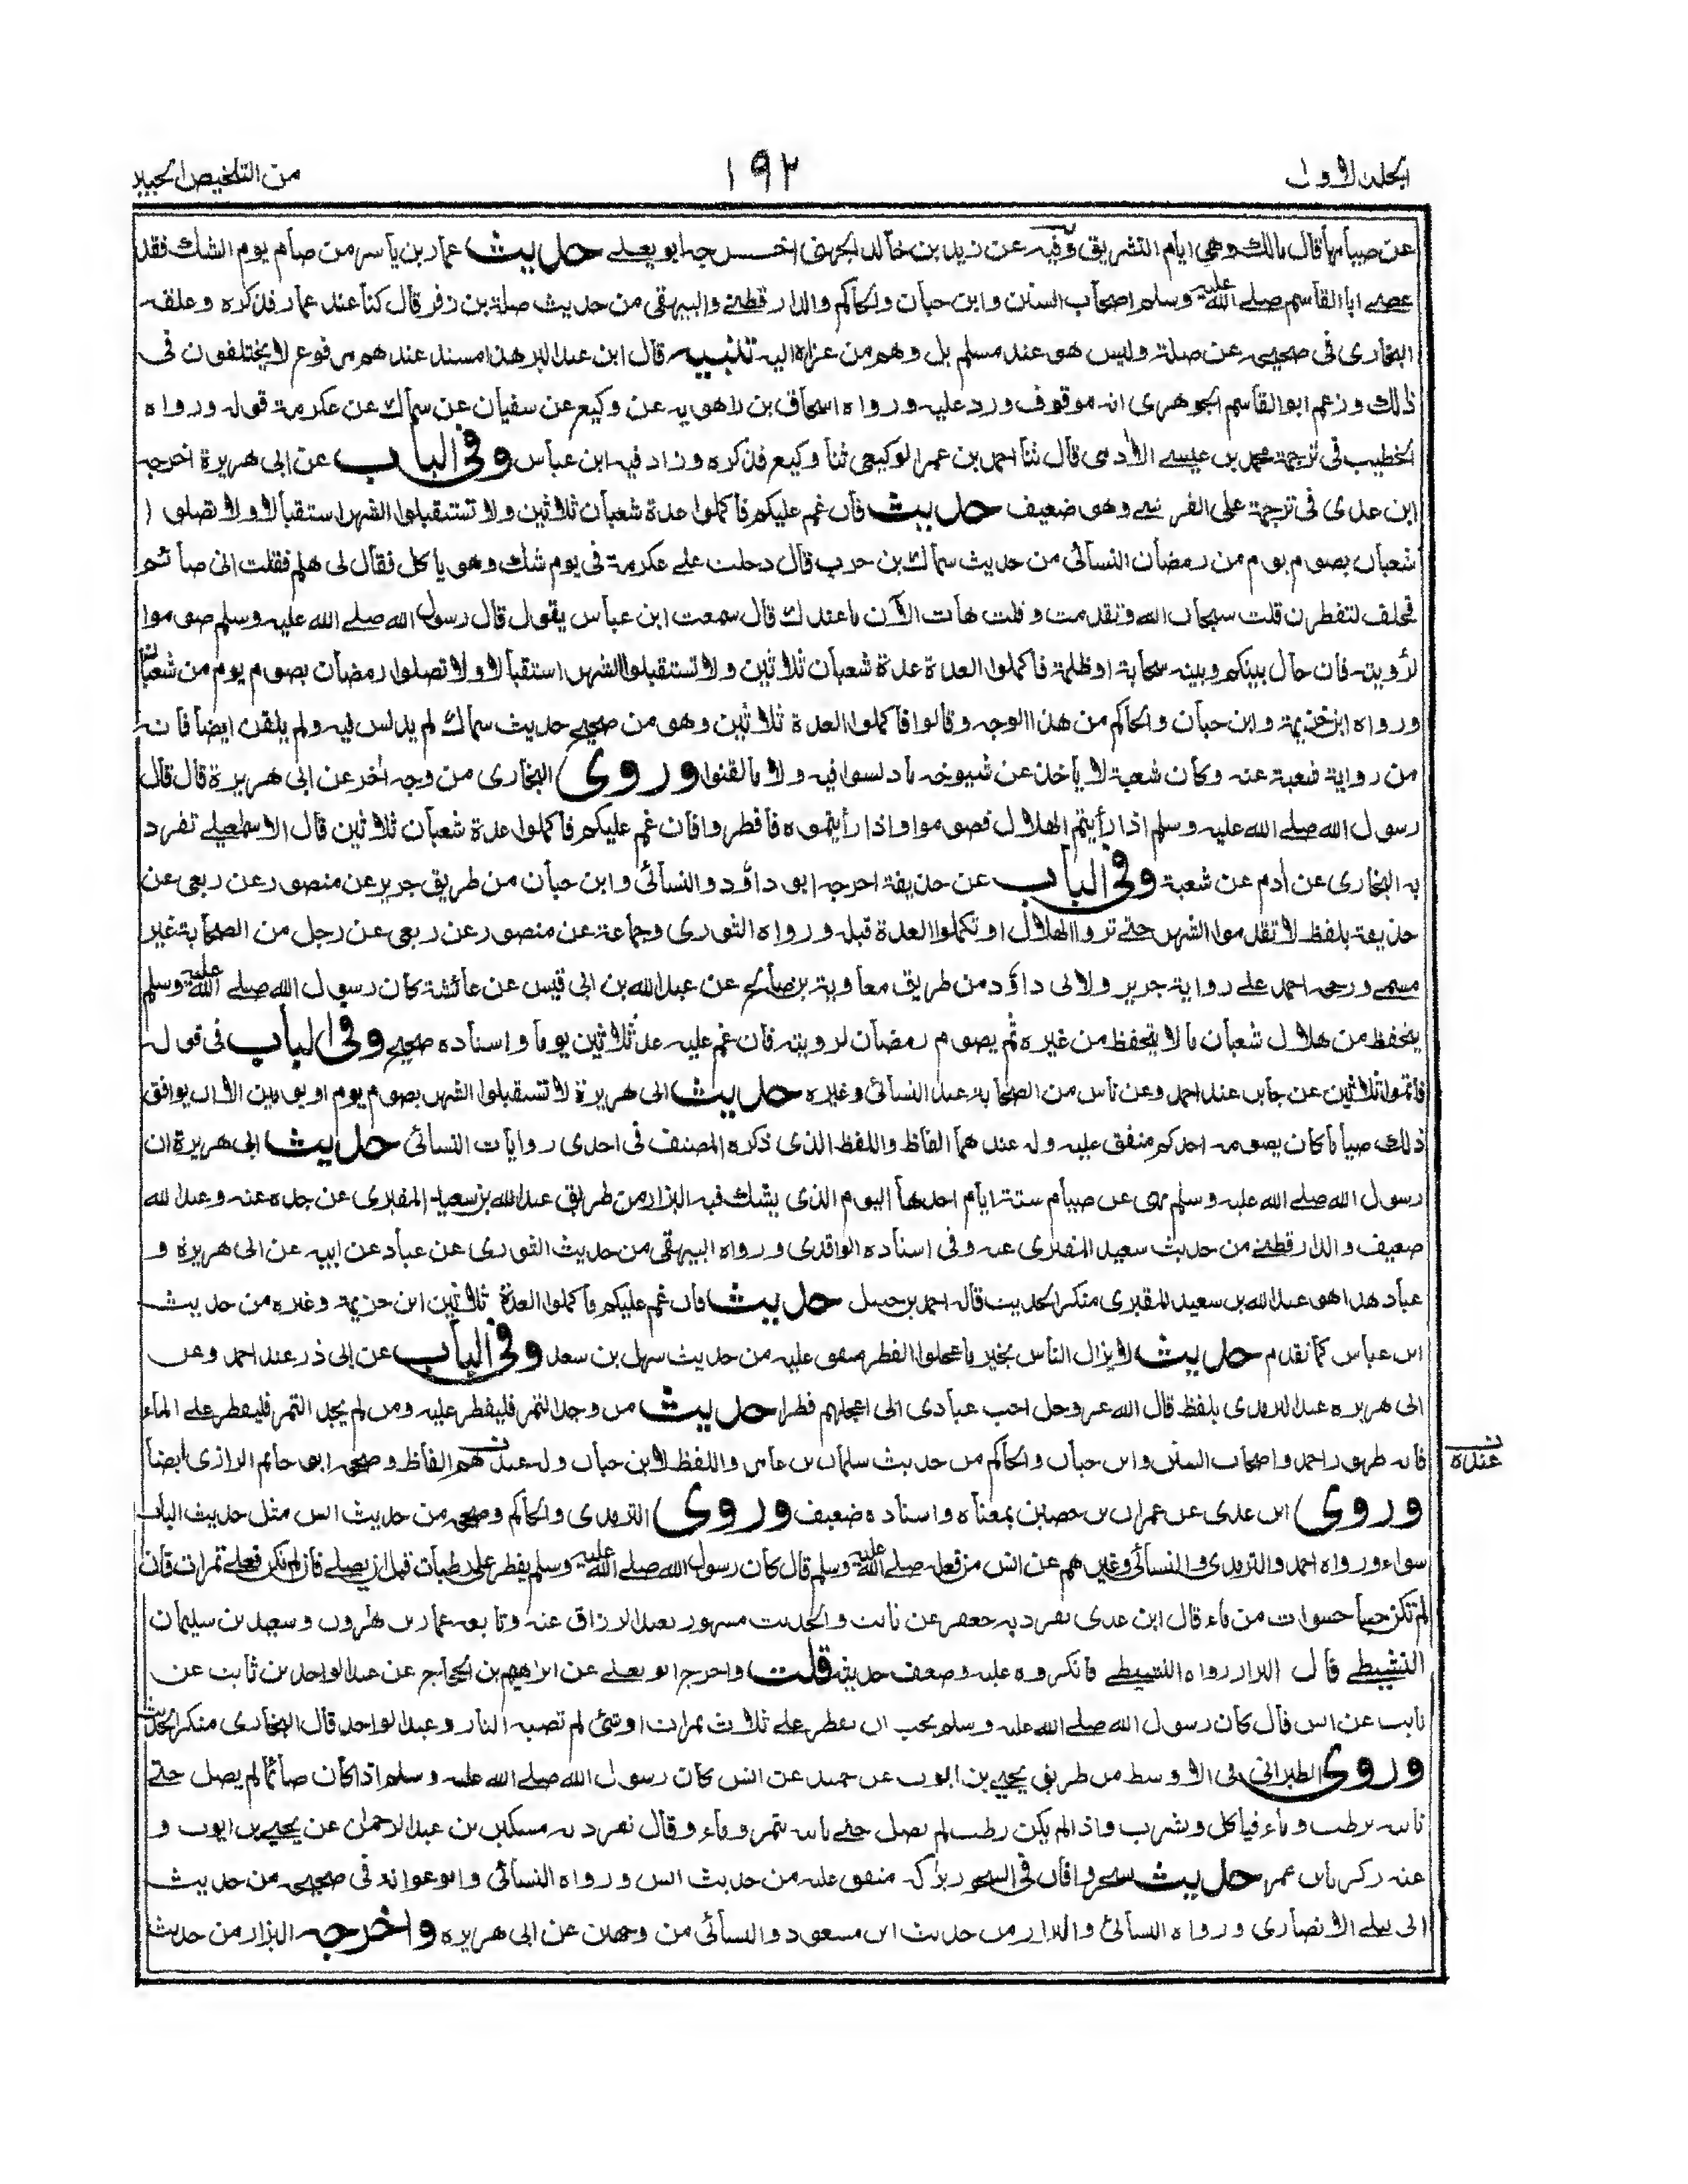 الجلد الاول ١٩٢ من التلخيص الحبير
عن صيامها قال مالك وهي ايام التشريق وفيه عن زيد بن خالد الجهني اخرجه ابو يعلے حديث عمار بن ياسر من صام يوم الشك فقد
عصے ابا القاسم صلے الله عليه وسلم اصحاب السنن وابن حبان والحاكم والدارقطنے والبيهقي من حديث صلة بن زفر قال كنا عند عمار فذكره وعلقه
البخاري في صحيحه عن صلة وليس هو عند مسلم بل وهم من عزاه اليه تنبيه قال ابن عبد البر هذا مسند عندهم مرفوع لا يختلفون في
ذلك وزعم ابو القاسم الجوهري انه موقوف ورد عليه ورواه اسحاق بن راهويه عن وكيع عن سفيان عن سماك عن عكرمة قوله ورواه
الخطيب في ترجمة محمد بن عيسے الادمي قال ثنا احمد بن عمر الوكيعي ثنا وكيع فذكره وزاد فيه ابن عباس وفي الباب عن ابي هريرة اخرجه
ابن عدي في ترجمة علي القرشے وهو ضعيف حديث فان غم عليكم فاكملوا عدة شعبان ثلاثين ولا تستقبلوا الشهر استقبالا ولا تصلوا (
شعبان بصوم يوم من رمضان النسائي من حديث سماك بن حرب قال دخلت علے عكرمة في يوم شك وهو ياكل فقال لي هلم فقلت اني صائم
فحلف لتفطرن قلت سبحان الله وتقدمت وقلت هات الآن ما عندك قال سمعت ابن عباس يقول قال رسول الله صلے الله عليه وسلم صوموا
لرؤيته فان حال بينكم وبينه سحابة او ظلمة فاكملوا العدة عدة شعبان ثلاثين ولا تستقبلوا الشهر استقبالا ولا تصلوا رمضان بصوم يوم من شعبان
ورواه ابن خزيمة وابن حبان والحاكم من هذا الوجه وقالوا فاكملوا العدة ثلاثين وهو من صحيح حديث سماك لم يدلس فيه ولم يلقن ايضا فانه
من رواية شعبة عنه وكان شعبة لا ياخذ عن شيوخه ما دلسوا فيه ولا ما لقنوا وروى البخاري من وجه اخر عن ابي هريرة قال قال
رسول الله صلے الله عليه وسلم اذا رأيتم الهلال فصوموا واذا رأيتموه فافطروا فان غم عليكم فاكملوا عدة شعبان ثلاثين قال الاسمعيلے تفرد
به البخاري عن ادم عن شعبة وفي الباب عن حذيفة اخرجه ابو داؤد والنسائي وابن حبان من طريق جرير عن منصور عن ربعي عن
حذيفة بلفظ لا تقدموا الشهر حتے تروا الهلال او تكملوا العدة قبله ورواه الثوري وجماعة عن منصور عن ربعي عن رجل من الصحابة غير
مسمے ورجحه احمد علے رواية جرير ولابي داؤد من طريق معاوية بن صالح عن عبد الله بن ابي قيس عن عائشة كان رسول الله صلے الله عليه وسلم
يتحفظ من هلال شعبان ما لا يتحفظ من غيره ثم يصوم رمضان لرويته فان غم عليه عد ثلاثين يوما واسناده صحيح وفي الباب في قوله
فاتموا ثلاثين عن جابر عند احمد وعن ناس من الصحابة عند النسائي وغيره حديث ابي هريرة لا تستقبلوا الشهر بصوم يوم او يومين الا ان يوافق
ذلك صياما كان يصومه احدكم متفق عليه وله عندهما الفاظ واللفظ الذي ذكره المصنف في احدى روايات النسائي حديث ابي هريرة ان
رسول الله صلے الله عليه وسلم نهى عن صيام ستة ايام احدها اليوم الذي يشك فيه البزار من طريق عبد الله بن سعيد المقبري عن جده عنه وعبد الله
ضعيف والدارقطنے من حديث سعيد المقبري عنه وفي اسناده الواقدي ورواه البيهقي من حديث الثوري عن عباد عن ابيه عن ابي هريرة و
عباد هذا هو عبد الله بن سعيد المقبري منكر الحديث قاله احمد بن حنبل حديث فان غم عليكم فاكملوا العدة ثلاثين ابن خزيمة وغيره من حديث
ابن عباس كما تقدم حديث لا يزال الناس بخير ما عجلوا الفطر متفق عليه من حديث سهل بن سعد وفي الباب عن ابي ذر عند احمد وعن
ابي هريره عند الترمذي بلفظ قال الله عز وجل احب عبادي الي اعجلهم فطرا حديث من وجد التمر فليفطر عليه ومن لم يجد التمر فليفطر علے الماء
فانه طهور احمد واصحاب السنن وابن حبان والحاكم من حديث سلمان بن عامر واللفظ لابن حبان وله عندهم الفاظ وصححه ابو حاتم الرازي ايضا
عنده
وروى ابن عدي عن عمران بن حصين بمعناه واسناده ضعيف وروى الترمذي والحاكم وصححه من حديث انس مثل حديث الباب
سواء ورواه احمد والترمذي والنسائي وغيرهم عن انس من فعله صلے الله عليه وسلم قال كان رسول الله صلے الله عليه وسلم يفطر علے رطبات قبل ان يصلے فان لم تكن فعلے تمرات فان
لم تكن حسا حسوات من ماء قال ابن عدي تفرد به جعفر عن ثابت والحديث مشهور بعبد الرزاق عنه وتابعه عمار بن هارون وسعيد بن سليمان
النشيطے قال البزار رواه النشيطے فانكروه عليه وضعف حديثه قلت واخرج ابو يعلے عن ابراهيم بن الحجاج عن عبد الواحد بن ثابت عن
ثابت عن انس قال كان رسول الله صلے الله عليه وسلم يحب ان يفطر علے ثلاث تمرات او شئ لم تصبه النار وعبد الواحد قال البخاري منكر الحديث
وروى الطبراني في الاوسط من طريق يحيے بن ايوب عن حميد عن انس كان رسول الله صلے الله عليه وسلم اذا كان صائما لم يصل حتے
ناتيه برطب وماء فياكل ويشرب واذا لم يكن رطب لم يصل حتے ناتيه بتمر وماء وقال تفرد به مسكين بن عبد الرحمن عن يحيے بن ايوب و
عنه زكريا بن عمر حديث تسحروا فان في السحور بركة متفق عليه من حديث انس ورواه النسائي وابو عوانة في صحيحه من حديث
ابي ليلے الانصاري ورواه النسائي والبزار من حديث ابن مسعود والنسائي من وجهين عن ابي هريره واخرجه البزار من حديث